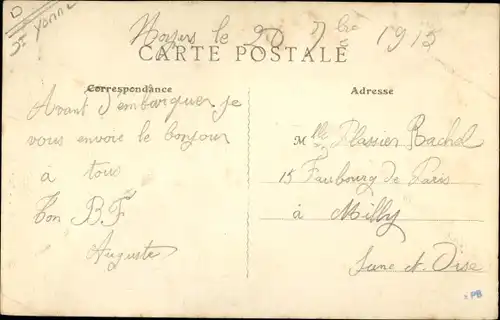 D
Yonne
Noyers le 20 7bre 1915
CARTE POSTALE
Correspondance
Adresse
Avant d'embarquer je
vous envoie le bonjour
à tous
Ton B. F.
Auguste
Mlle Plassier Rachel
15 Faubourg de Paris
à Milly
Seine et Oise
x PB